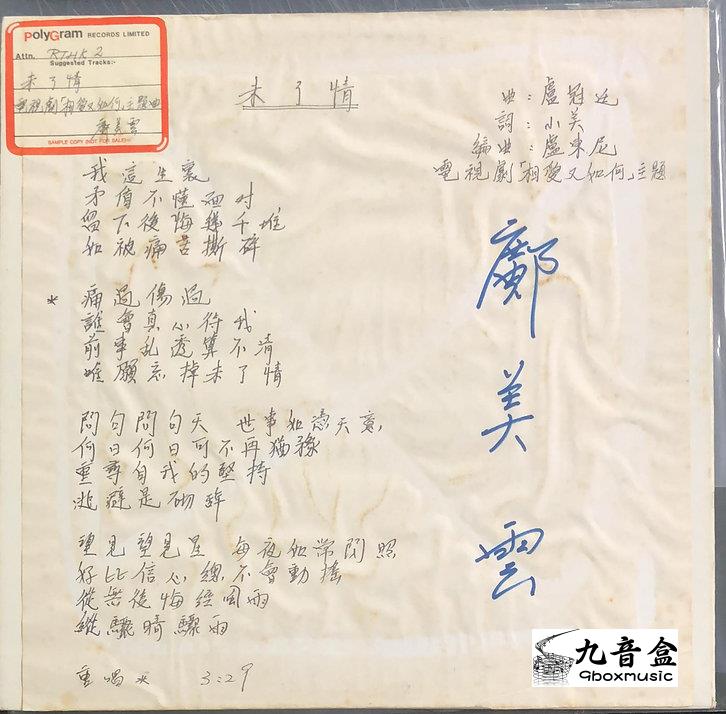 PolyGram RECORDS LIMITED
Attn. RTHK 2
Suggested Tracks:-
未了情
電視劇「相愛又如何」主題曲
鄺美雲
SAMPLE COPY (NOT FOR SALE)
未了情
曲：盧冠廷
詞：小美
編曲：盧東尼
電視劇「相愛又如何」主題
我這生裏
矛盾不懂面对
留下後悔幾千堆
如被痛苦撕碎
* 痛過傷過
誰會真心待我
前事乱透算不清
唯願忘掉未了情
問句問句天 世事如憑天意,
何日何日可不再猶豫
重尋自我的堅持
逃避是砌
望見望見星 每夜如常閃照
好比信心總不會動搖
從無後悔經風雨
縱驟晴驟雨
重唱* 3:29
鄺美雲
九音盒
9boxmusic